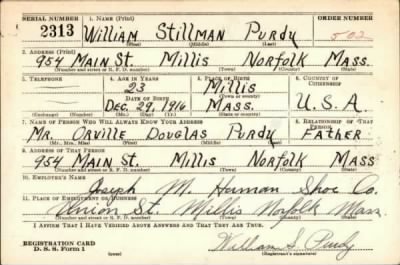 SERIAL NUMBER 1. NAME (Print) ORDER NUMBER
2313 William Stillman Purdy 502
(First) (Middle) (Last)
2. ADDRESS (Print)
954 Main St. Millis Norfolk Mass.
(Number and street or R. F. D. number) (Town) (County) (State)
3. TELEPHONE 4. AGE IN YEARS 5. PLACE OF BIRTH 6. COUNTRY OF CITIZENSHIP
23 Millis
DATE OF BIRTH (Town or county)
Dec. 29, 1916 Mass. U.S.A.
(Exchange) (No.) (Mo.) (Day) (Yr.) (State or country)
7. NAME OF PERSON WHO WILL ALWAYS KNOW YOUR ADDRESS 8. RELATIONSHIP OF THAT PERSON
Mr. Orville Douglas Purdy Father
(Mr., Mrs., Miss) (First) (Middle) (Last)
9. ADDRESS OF THAT PERSON
954 Main St. Millis Norfolk Mass
(Number and street or R. F. D. number) (Town) (County) (State)
10. EMPLOYER'S NAME
Joseph M. Herman Shoe Co.
11. PLACE OF EMPLOYMENT OR BUSINESS
Union St. Millis Norfolk Mass
(Number and street or R. F. D. number) (Town) (County) (State)
I AFFIRM THAT I HAVE VERIFIED ABOVE ANSWERS AND THAT THEY ARE TRUE.
REGISTRATION CARD
D. S. S. Form 1 (over) William S. Purdy
(Registrant's signature)